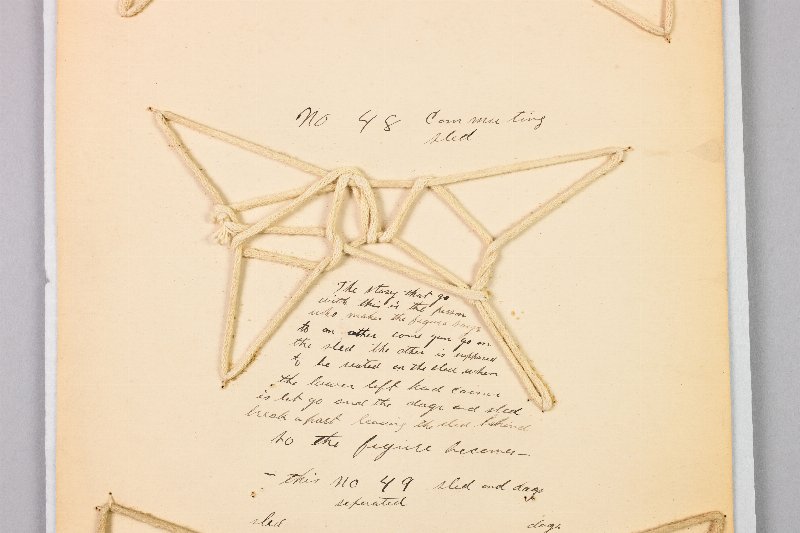 No 48 Commuting
sled
The story that go
with this is the person
who makes the figure says
to an other come you go on
the sled the other is supposed
to be seated on the sled when
the lower left hand corner
is let go and the dogs and sled
break apart leaving the sled behind
so the figure becomes—
— this No 49 sled and dogs
seperated
sled dogs